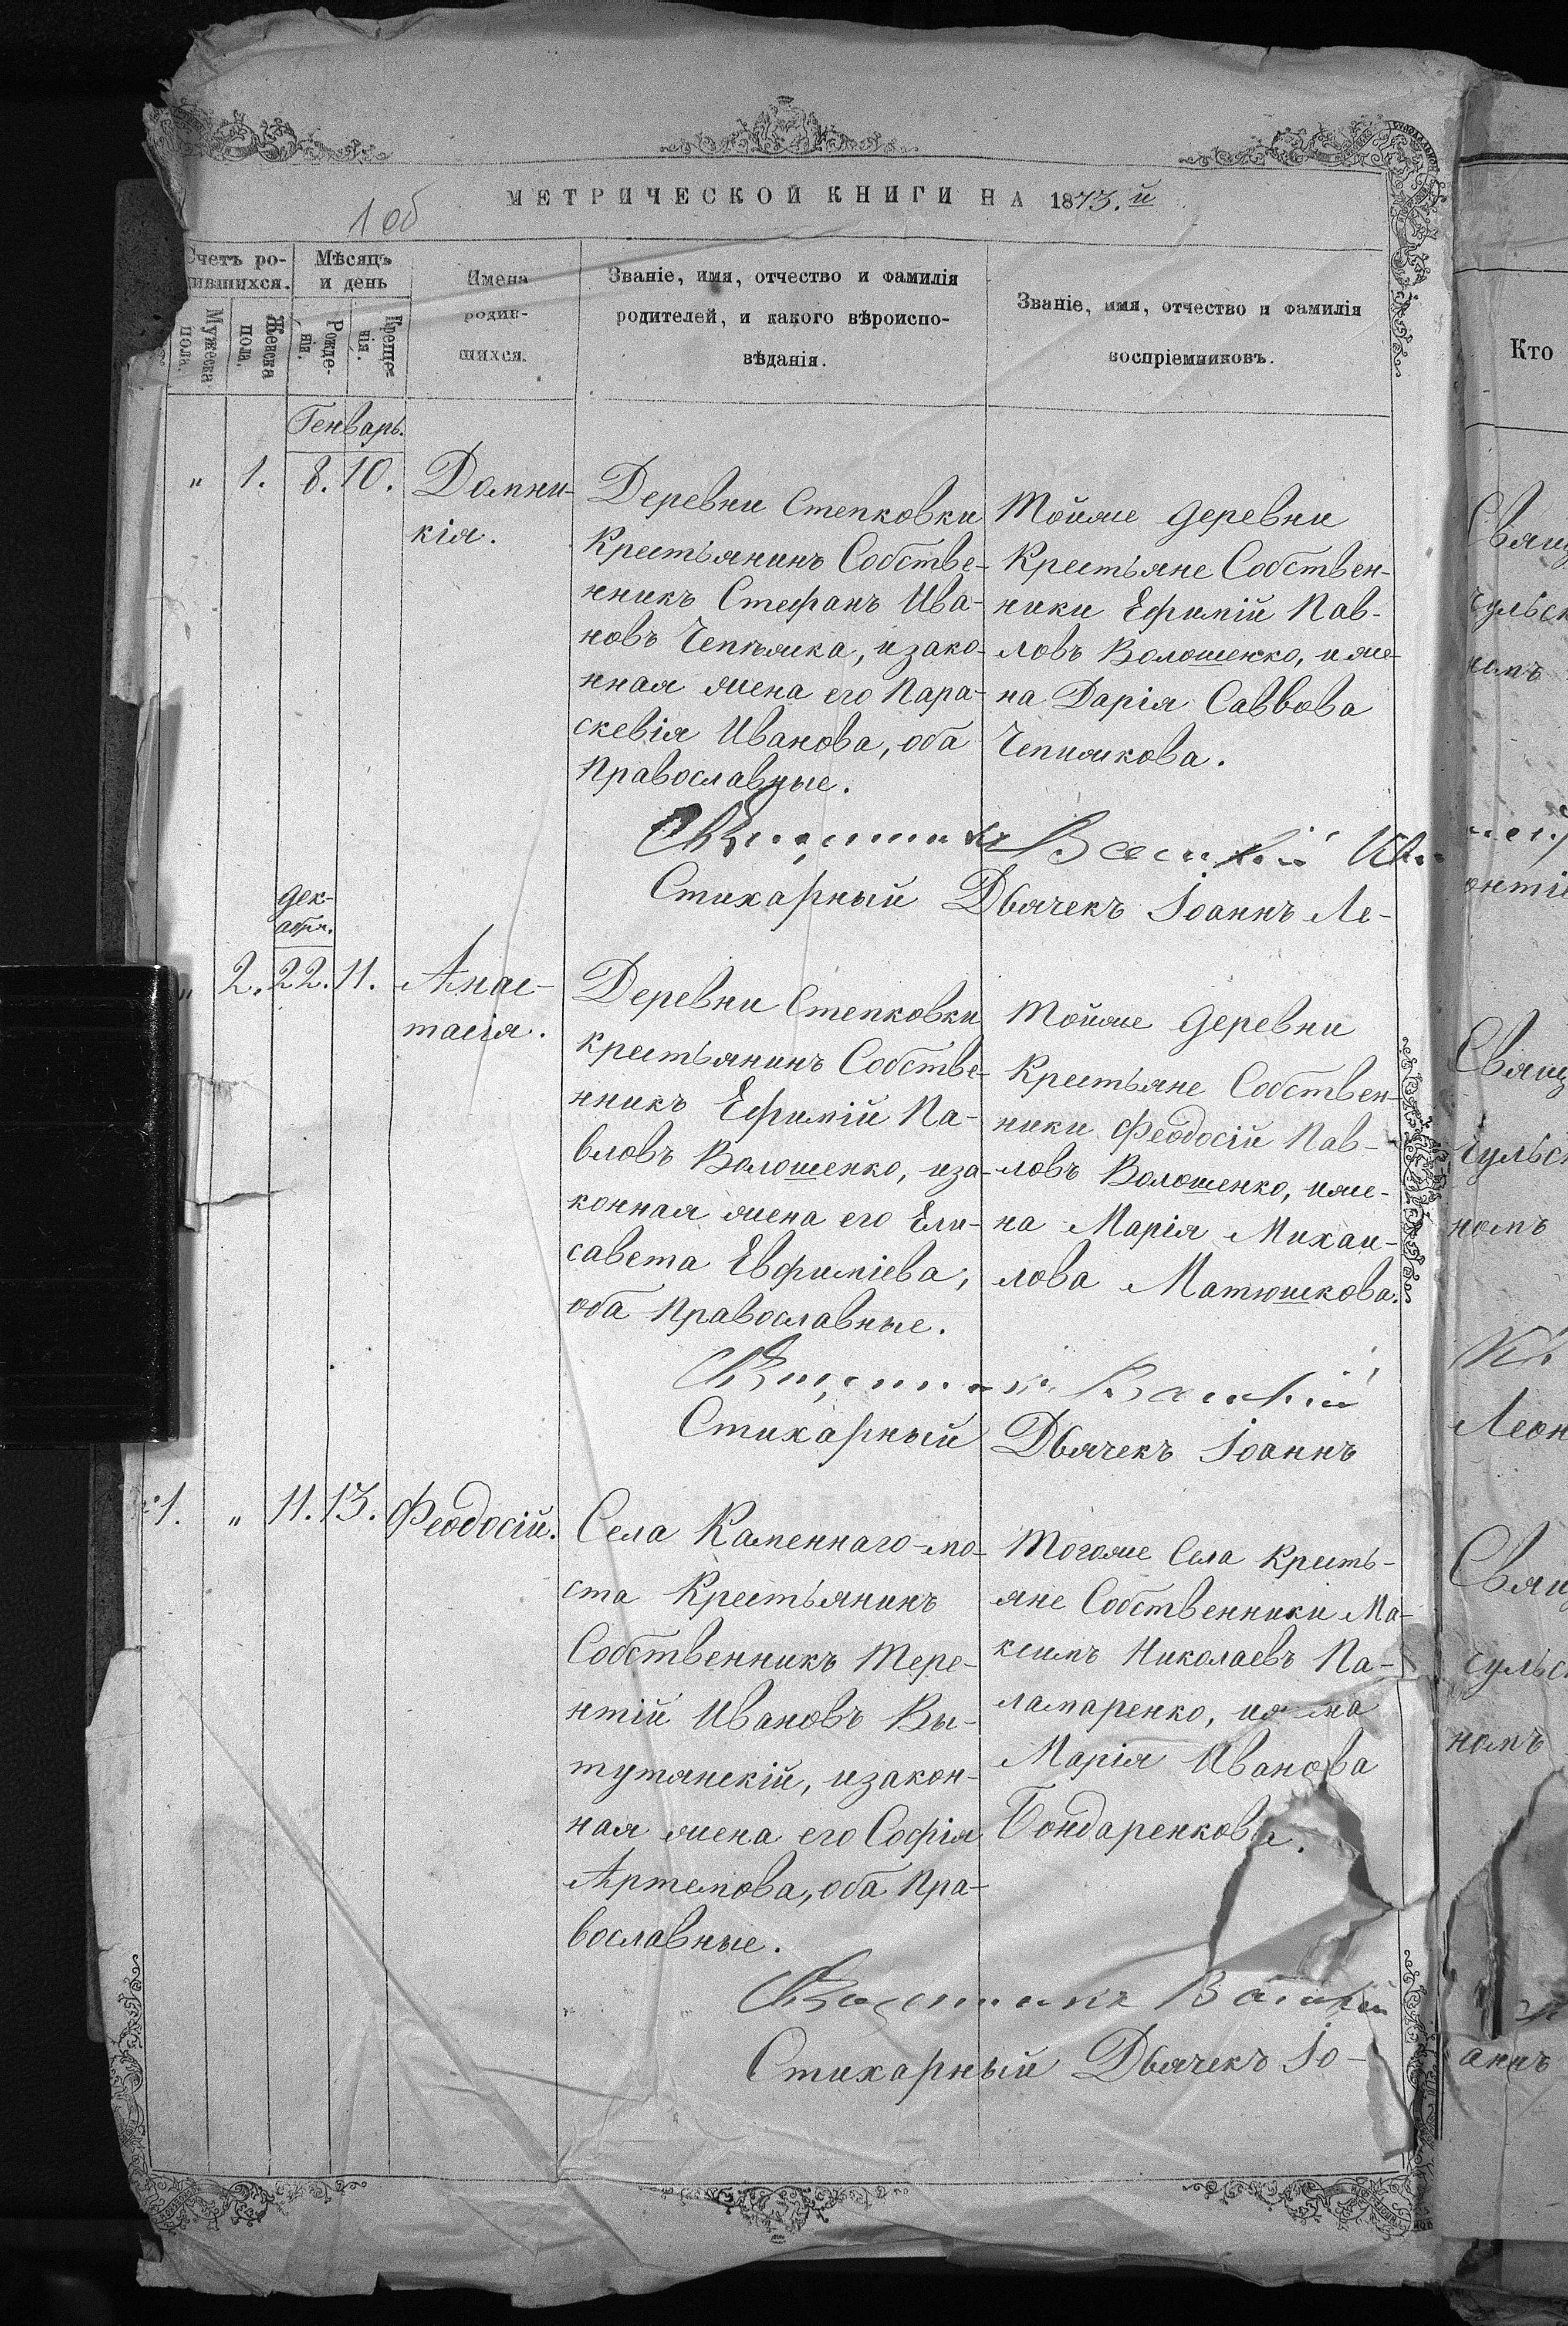 МЕТРИЧЕСКОЙ КНИГИ НА 1873.й
1 об
Счетъ ро-
дившихся.
Мужеска
пола.
Женска
пола.
Мѣсяцъ
и день
Рожде-
нія.
Креще-
нія.
Имена
родив-
шихся.
Званіе, имя, отчество и фамилія
родителей, и какого вѣроиспо-
вѣданія.
Званіе, имя, отчество и фамилія
воспріемниковъ.
Генварь.
" 1. 8. 10.
Домни-
кія.
Деревни Степковки
Крестьянинъ Собстве-
нникъ Стефанъ Ива-
новъ , и зако-
нная жена его Пара-
скевія Иванова, оба
Православные.
Тойже деревни
Крестьяне Собствен-
ники Ефимій Пав-
ловъ Волошенко, и же-
на Дарія Саввова
Чепижкова.
Священникъ Василій
Стихарный Дьячекъ Іоаннъ Ле-
дек-
абрь.
" 2. 22. 11.
Анас-
тасія.
Деревни Степковки
крестьянинъ Собстве-
нникъ Ефимій Па-
вловъ Волошенко, и за-
конная жена его Ели-
савета Евфиміева,
оба Православные.
Тойже деревни
Крестьяне Собствен-
ники Феодосій Пав-
ловъ Волошенко, и же-
на Марія Михаи-
лова Матюшкова.
Священникъ Василій
Стихарный Дьячекъ Іоаннъ
1. " 11. 13.
Феодосій.
Села Каменнаго-мо-
ста Крестьянинъ
Собственникъ Тере-
нтій Ивановъ Вы-
тутянскій, и закон-
ная жена его Софія
Артемова, оба Пра-
вославные.
Тогоже Села Кресть-
яне Собственники Ма-
ксимъ Николаевъ Па-
ламаренко,
Марія Иванова
Бондаренкова.
Священникъ Василій
Стихарный Дьячекъ Іо-
Кто
Свящ
сульск
номъ
онтіе
Свящ
гульск
номъ
Леон
Свящ
гульс
номъ
аннъ